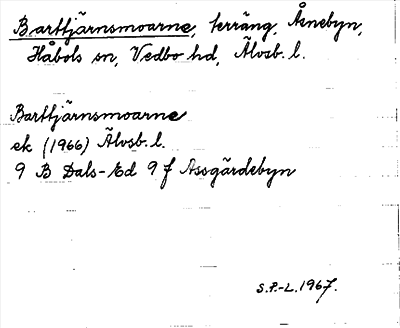 Barttjärnsmoarne, terräng, Åsnebyn,
Håbols sn, Vedbo hd, Älvsb. l.
Barttjärnsmoarne
ek (1966) Älvsb. l.
9 B Dals-Ed 9 f Assgärdebyn
S.P.-L. 1967.